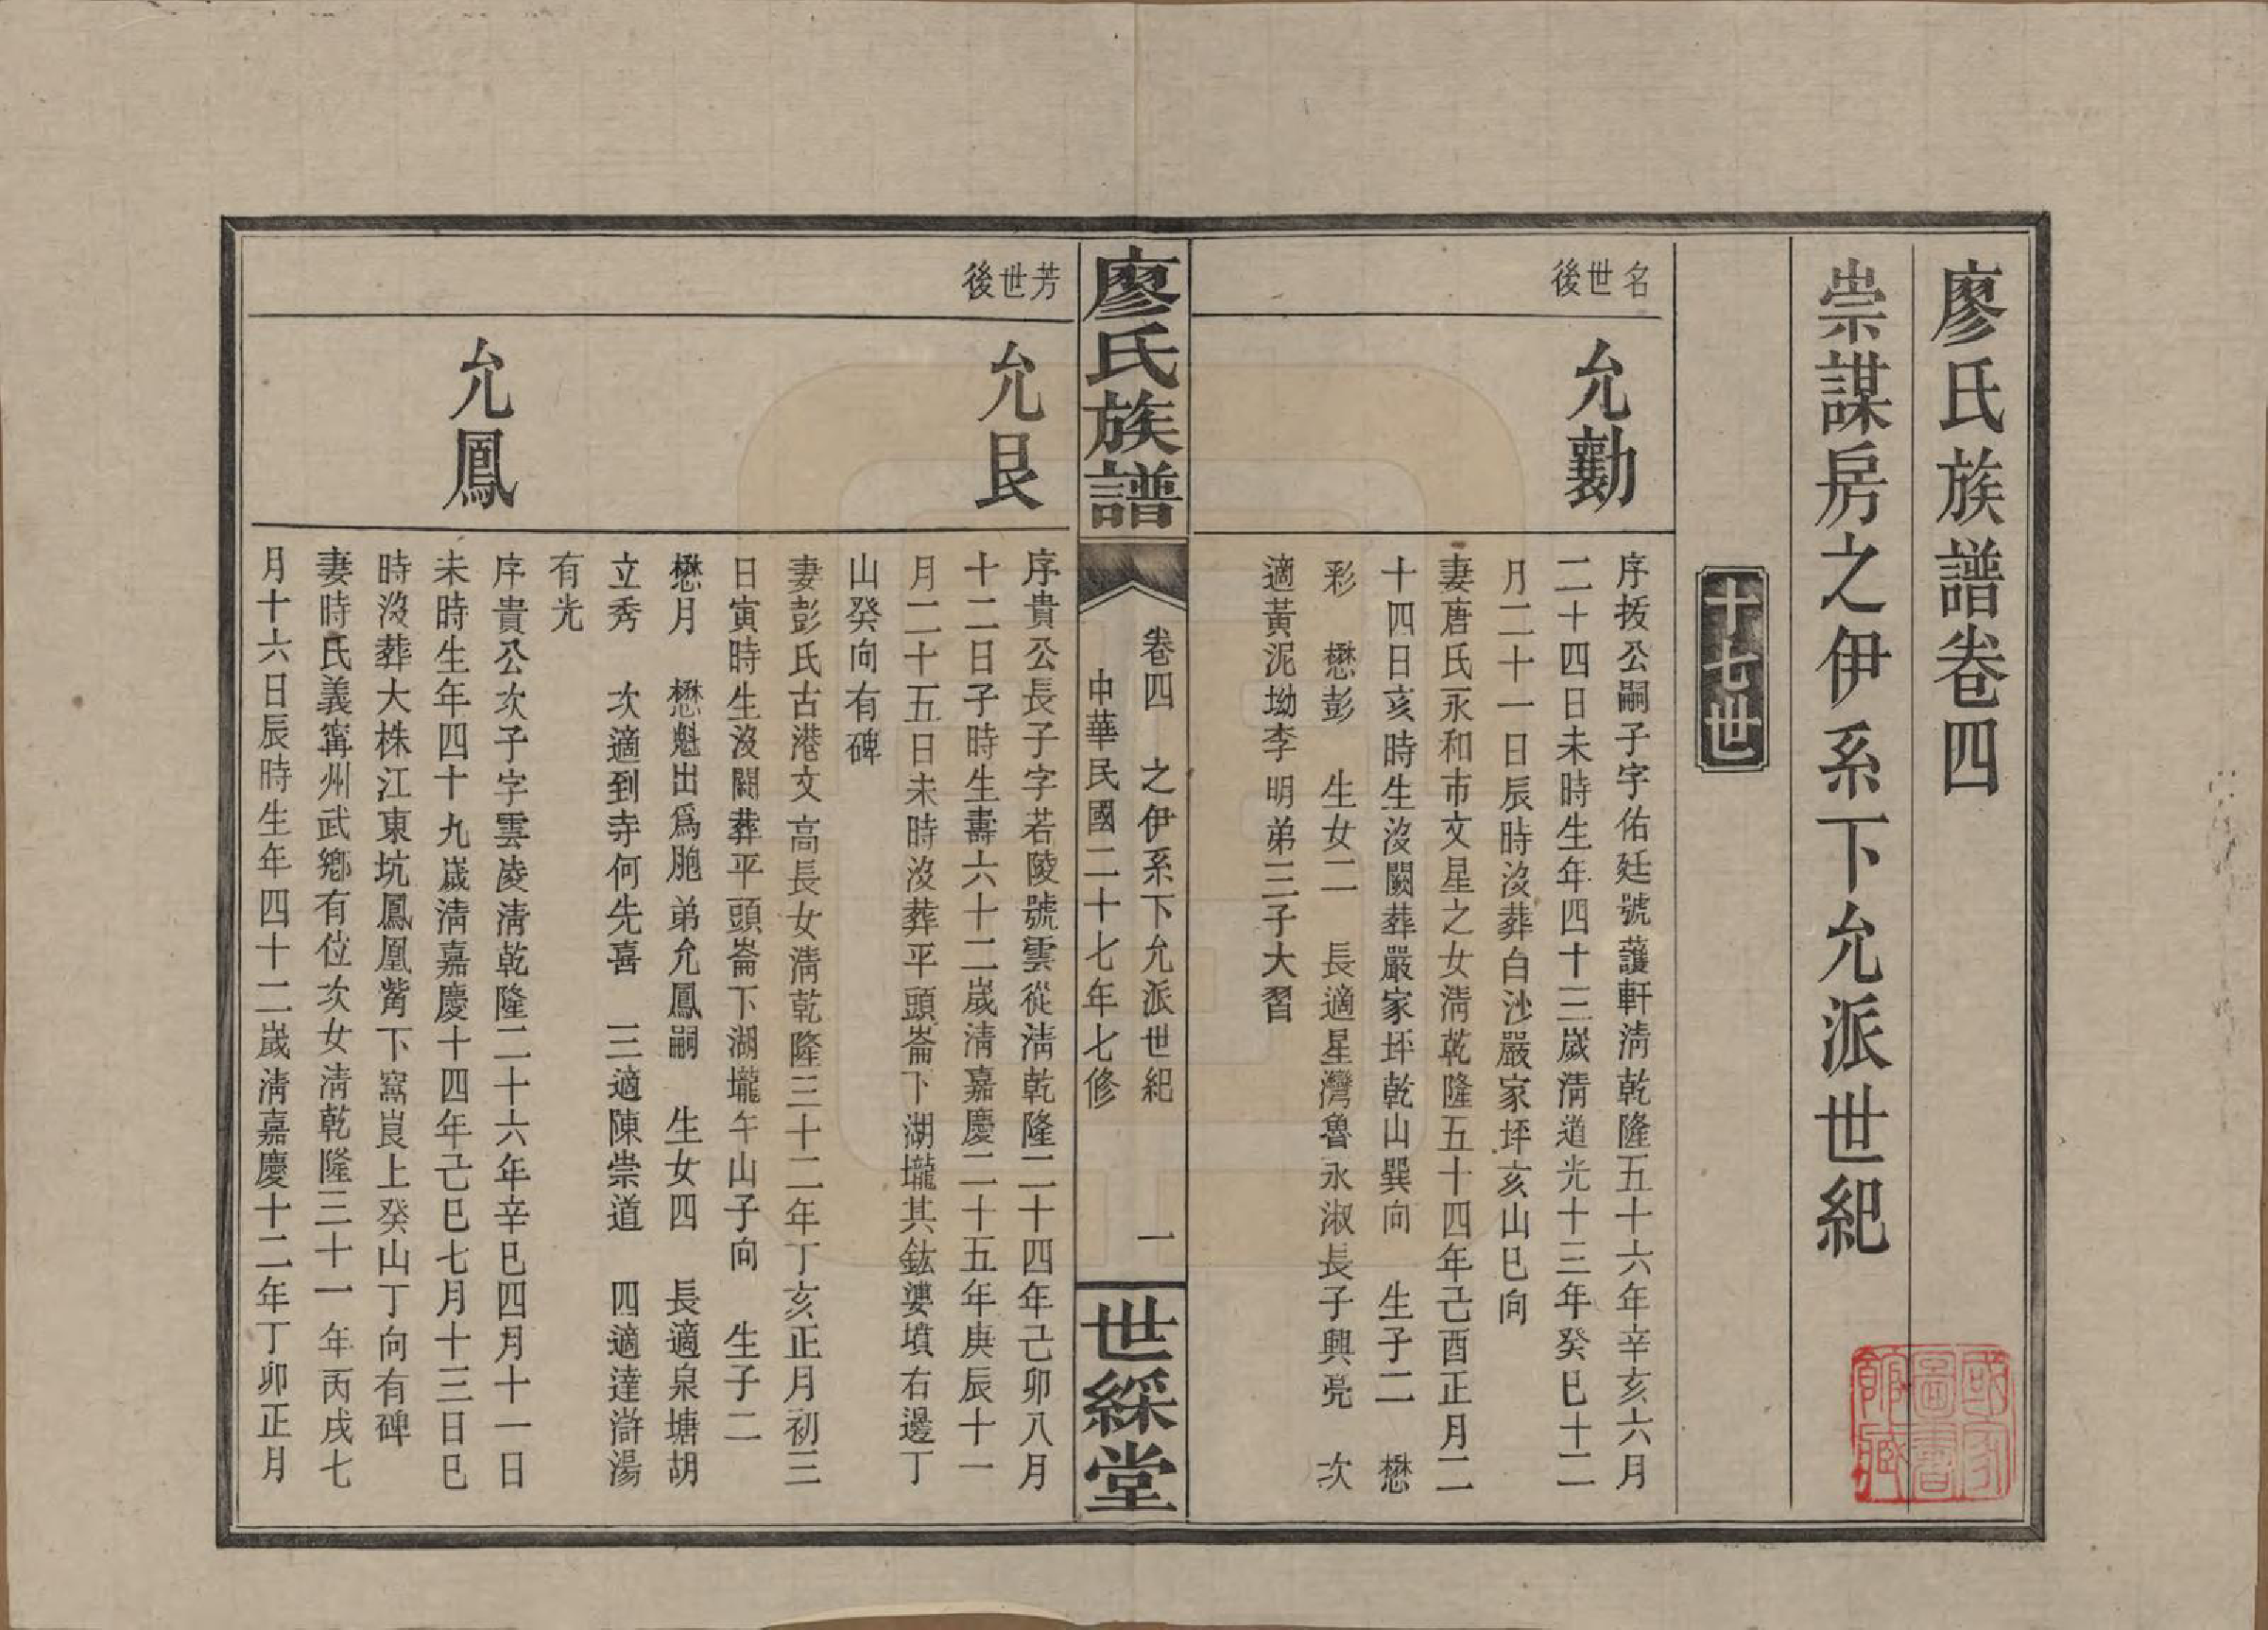 廖氏族譜卷四
崇謀房之伊系下允派世紀
十七世
名世後
允勷
序拔公嗣子字佑廷號護軒淸乾隆五十六年辛亥六月
二十四日未時生年四十三歲淸道光十三年癸巳十二
月二十一日辰時沒葬白沙嚴家坪亥山巳向
妻唐氏永和市文星之女淸乾隆五十四年己酉正月二
十四日亥時生沒闕葬嚴家坪乾山巽向　生子二　懋
彩　懋彭　生女二　長適星灣魯永淑長子興亮　次
適黃泥坳李明弟三子大習
廖氏族譜
卷四　之伊系下允派世紀　一
中華民國二十七年七修
世綵堂
芳世後
允艮
序貴公長子字若陵號雲從淸乾隆二十四年己卯八月
十二日子時生壽六十二歲淸嘉慶二十五年庚辰十一
月二十五日未時沒葬平頭崙下湖壠其鈜婆墳右邊丁
山癸向有碑
妻彭氏古港文高長女淸乾隆三十二年丁亥正月初三
日寅時生沒闕葬平頭崙下湖壠午山子向　生子二
懋月　懋魁出爲胞弟允鳳嗣　生女四　長適泉塘胡
立秀　次適到寺何先喜　三適陳崇道　四適達滸湯
有光
允鳳
序貴公次子字雲凌淸乾隆二十六年辛巳四月十一日
未時生年四十九歲淸嘉慶十四年己巳七月十三日巳
時沒葬大株江東坑鳳凰嘴下窩崀上癸山丁向有碑
妻時氏義寗州武鄕有位次女淸乾隆三十一年丙戌七
月十六日辰時生年四十二歲淸嘉慶十二年丁卯正月
國家圖書館藏